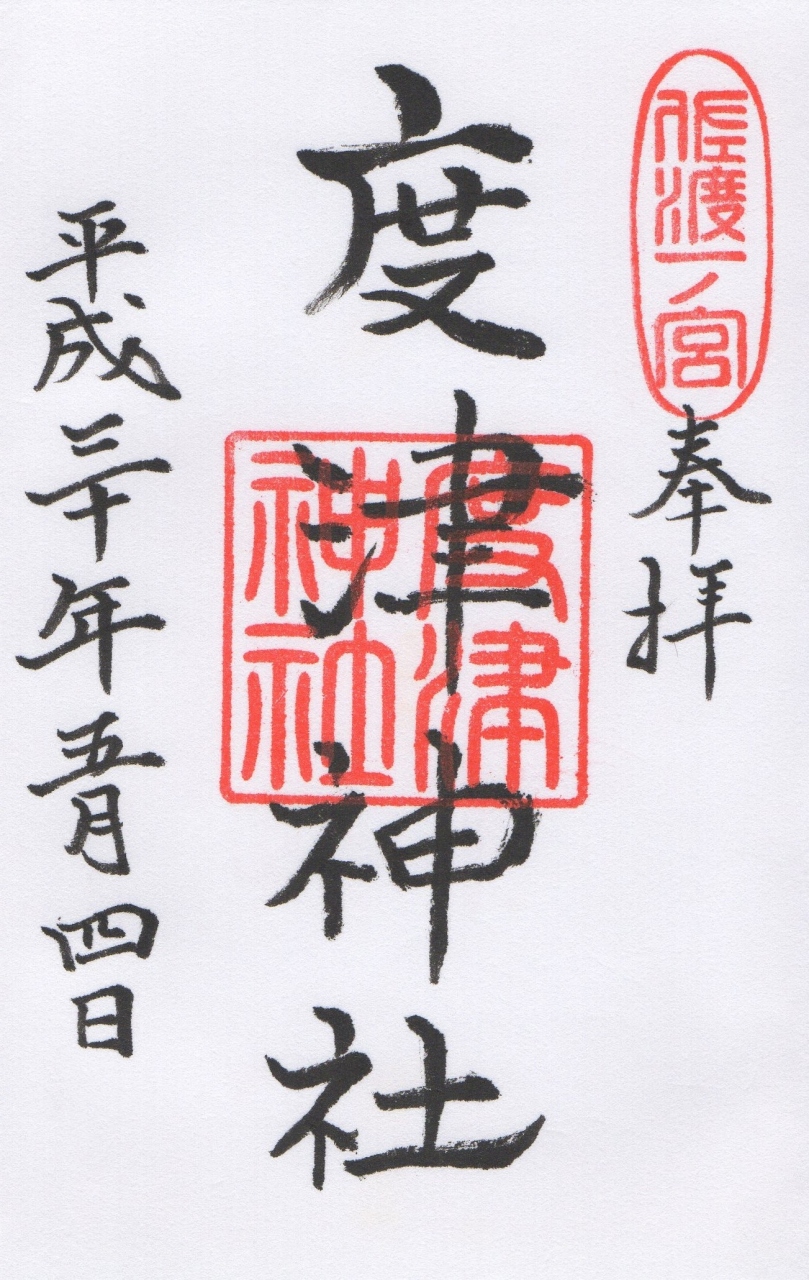 佐渡一ノ宮
奉拝
度津神社
度津
神社
平成三十年五月四日